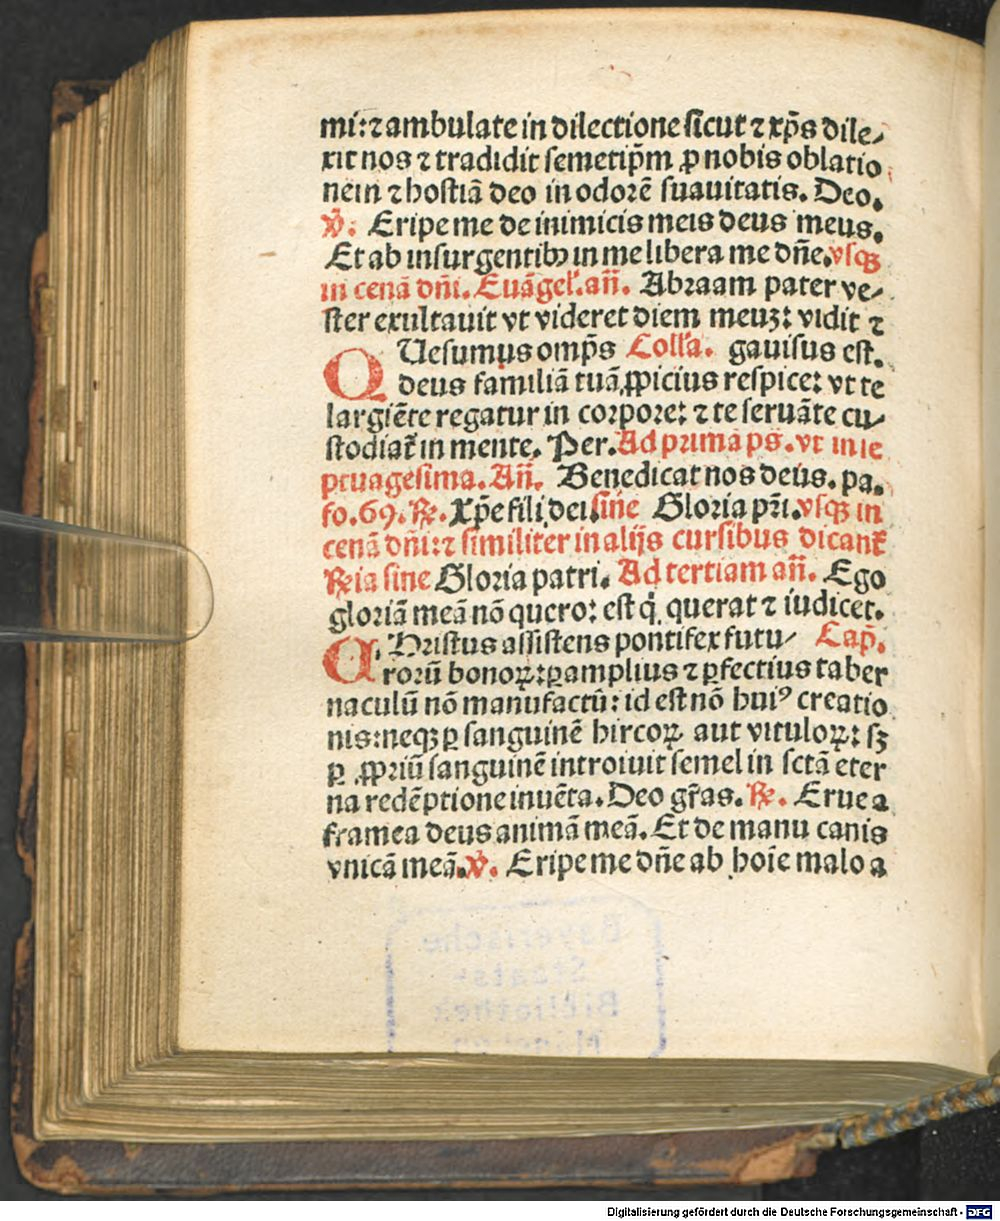 mi: ⁊ ambulate in dilectione sicut ⁊ xp̄s dile-
xit nos ⁊ tradidit semetip̄m ꝓ nobis oblatio
nem ⁊ hostiā deo in odorē suauitatis. Deo.
℣. Eripe me de inimicis meis deus meus.
Et ab insurgentibꝰ in me libera me dn̄e. vsqꝫ
in cenā dn̄i. Euāgel̄. an̄. Abraam pater ve-
ster exultauit vt videret diem meuꝫ: vidit ⁊
QUesumus omp̄s Coll̄a. gauisus est.
deus familiā tuā ꝓpicius respice: vt te
largiēte regatur in corpore: ⁊ te seruāte cu-
stodiat̄ in mente. Per. Ad prima ps. vt in se
ptuagesima. An̄. Benedicat nos deus. pa.
fo. 69. ℟. Xp̄e fili dei sine Gloria pr̄i. vsqꝫ in
cenā dn̄i: ⁊ similiter in alijs cursibus dicant̄
℟ia sine Gloria patri. Ad tertiam an̄. Ego
gloriā meā nō quero: est q̇ querat ⁊ iudicet.
CHristus assistens pontifex futu- Cap̄.
rorū bonoꝝ: ꝑ amplius ⁊ ꝑfectius taber
naculū nō manufactū: id est nō huiꝰ creatio
nis: neqꝫ ꝑ sanguinē hircoꝝ aut vituloꝝ: sꝫ
ꝑ ꝓpriū sanguinē introiuit semel in sctā eter
na redēptione inuēta. Deo gr̄as. ℟. Erue a
framea deus animā meā. Et de manu canis
vnicā meā. ℣. Eripe me dn̄e ab hoīe malo a
Bayerische
Staats-
Bibliothek
München
Digitalisierung gefördert durch die Deutsche Forschungsgemeinschaft - DFG